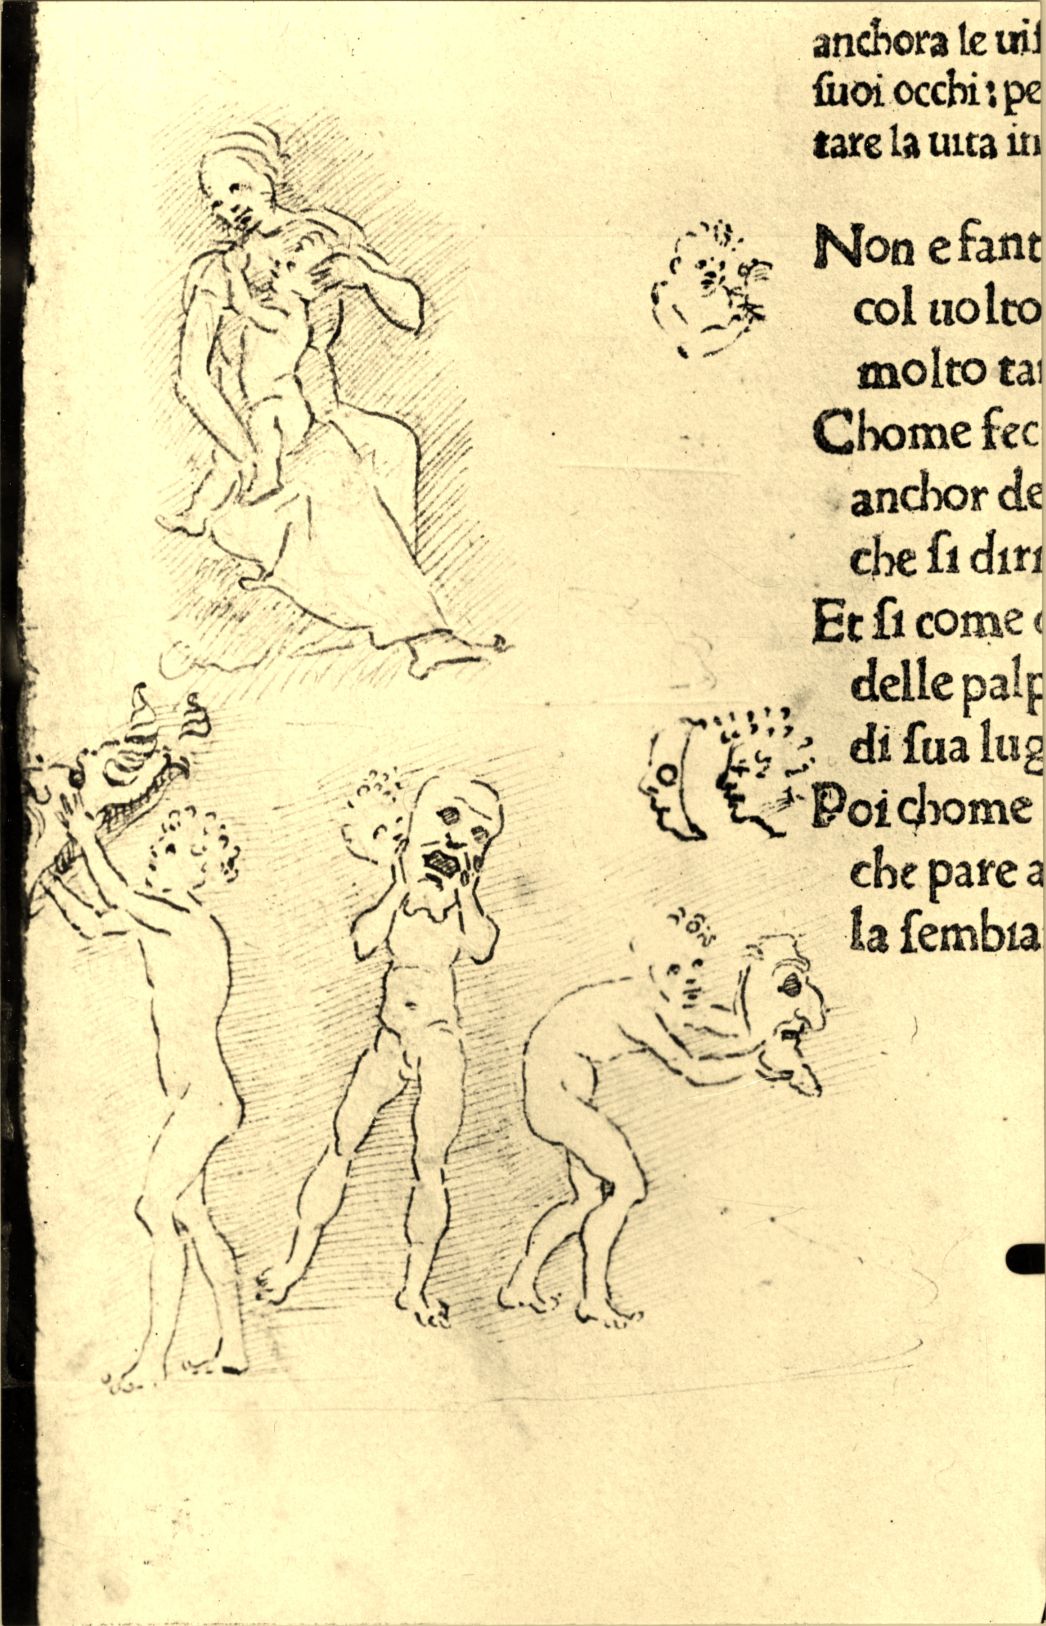 anchora le uiſ
ſuoi occhi : pe
tare la uita in
Non e fant
col uolto
molto tan
Chome fec
anchor de
che ſi diri
Et ſi come
delle palp
di ſua lug
Poi chome
che pare a
la ſembia